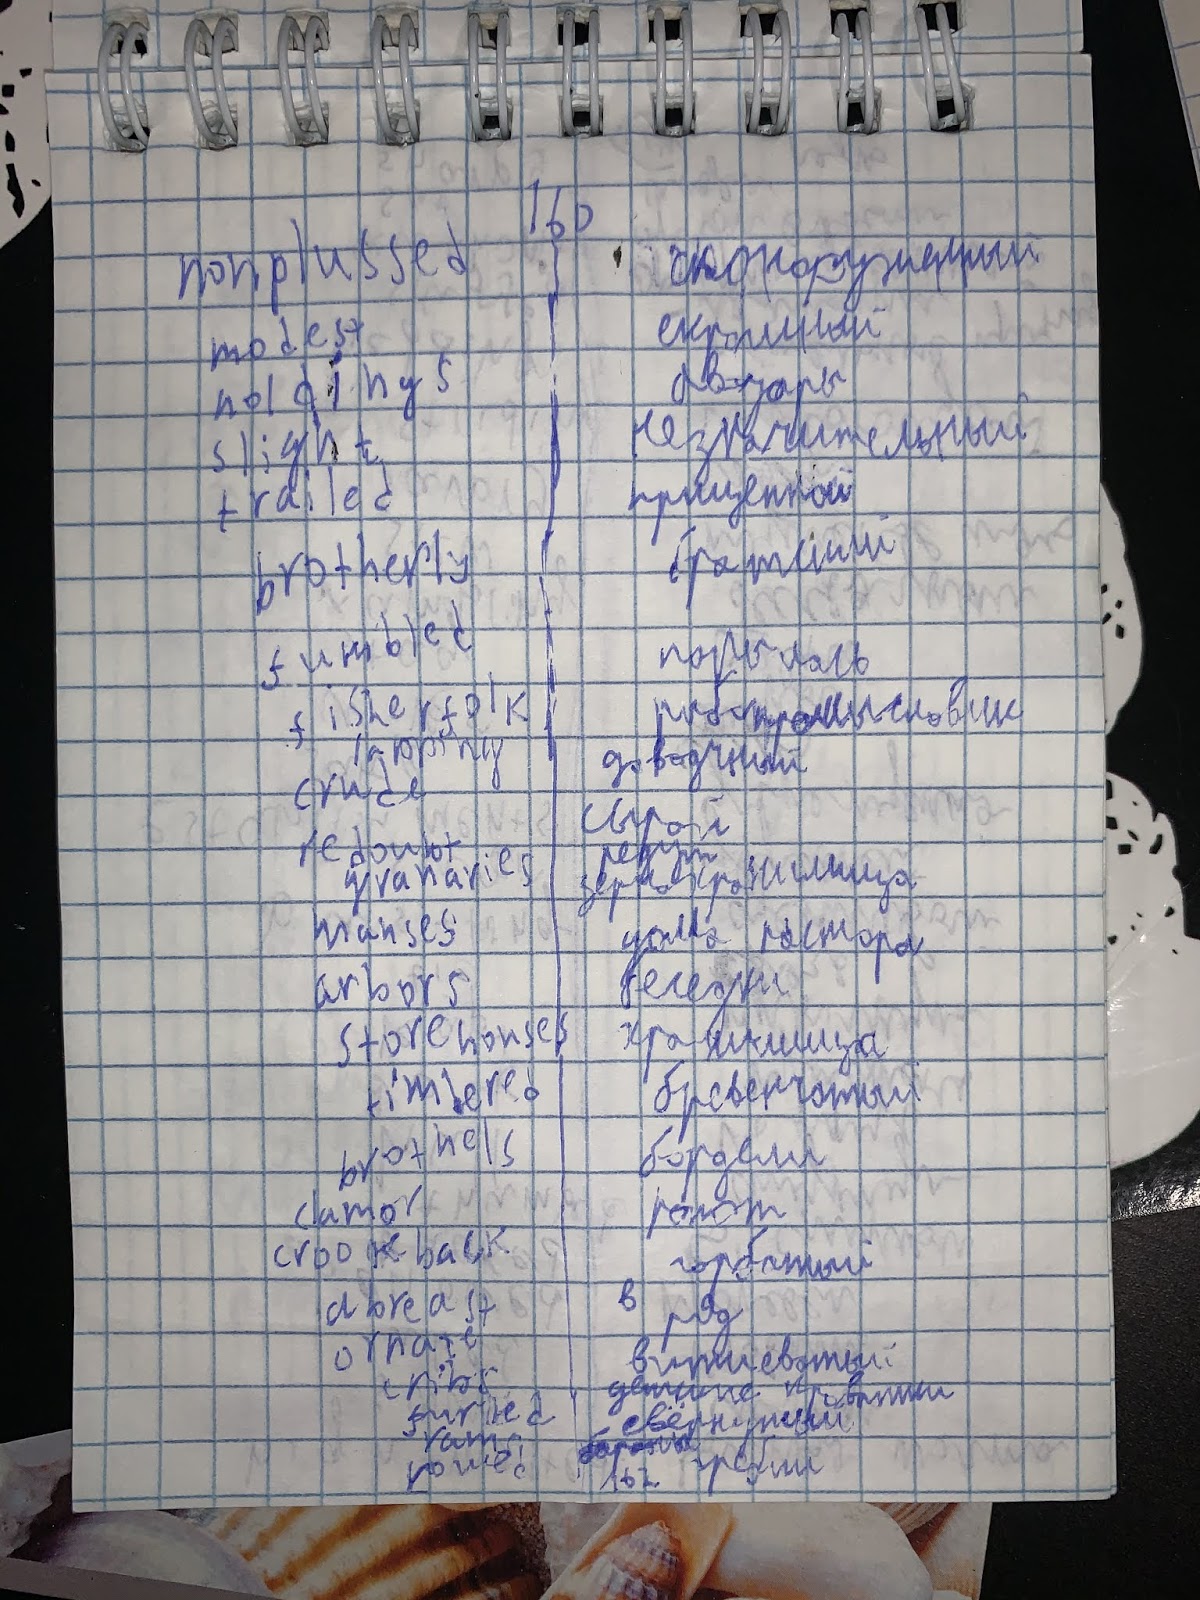 160
nonplussed сконфуженный
modest скромный
holdings
slight незначительный
trailed прицепной
brotherly братский
fumbled порылась
fisherfolk рыбопромысловик
lapping доводчный
crude сырой
redoubt редут
granaries зернохранилища
manses дома пастора
arbors беседки
storehouses хранилища
timbered бревенчатый
brothels бордели
clamor ропот
crookeback горбатый
abreast в ряд
ornate витиеватый
cribs детские кроватки
furled свёрнутый
rams
rowed 162 гребли